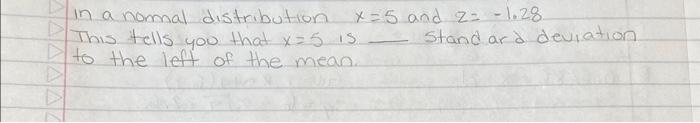 in a normal distribution x=5 and z= -1.28
This tells you that x=5 is ___ standard deviation
to the left of the mean.